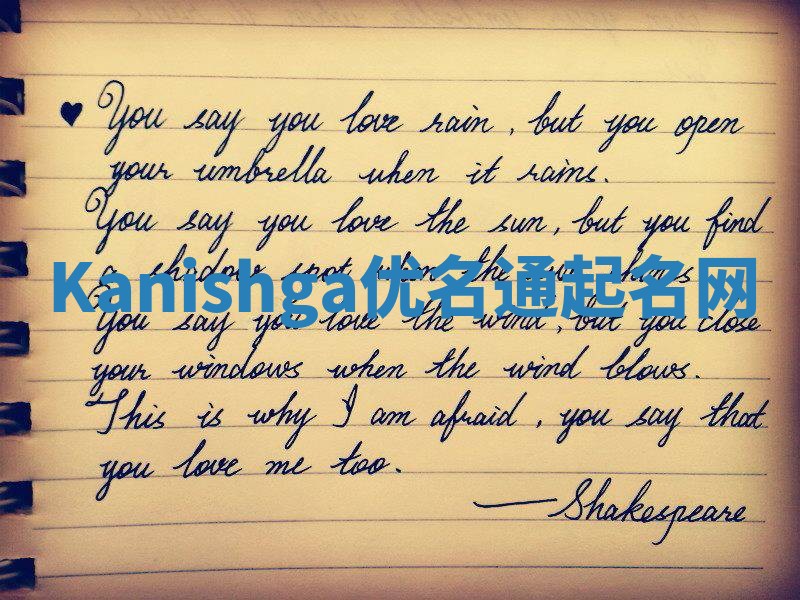 ♥ You say you love rain, but you open
your umbrella when it rains.
You say you love the sun, but you find
a shadow spot when the sun shines
Kanishga优名通起名网
You say you love the wind, but you close
your windows when the wind blows.
This is why I am afraid, you say that
you love me too.
—Shakespeare